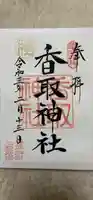 奉拝
香取神社
令和三年二月十三日